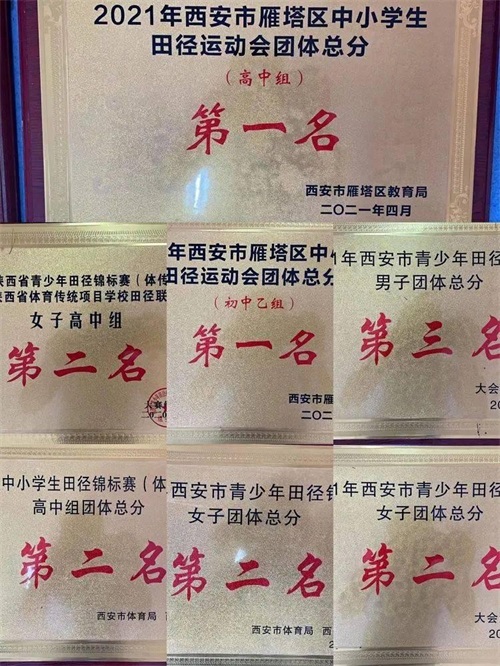 2021年西安市雁塔区中小学生
田径运动会团体总分
（高中组）
第一名
西安市雁塔区教育局
二〇二一年四月
陕西省青少年田径锦标赛（体传
陕西省体育传统项目学校田径联
女子高中组
第二名
年西安市雁塔区中
田径运动会团体总分
（初中乙组）
第一名
西安市雁
二〇二
1年西安市青少年田径
男子团体总分
第三名
大会
20
中小学生田径锦标赛（体
高中组团体总分
第二名
西安市体育局
西安市青少年田径锦
女子团体总分
第二名
西安市体育局 西
2
1年西安市青少年田径
女子团体总分
第二名
大会
20